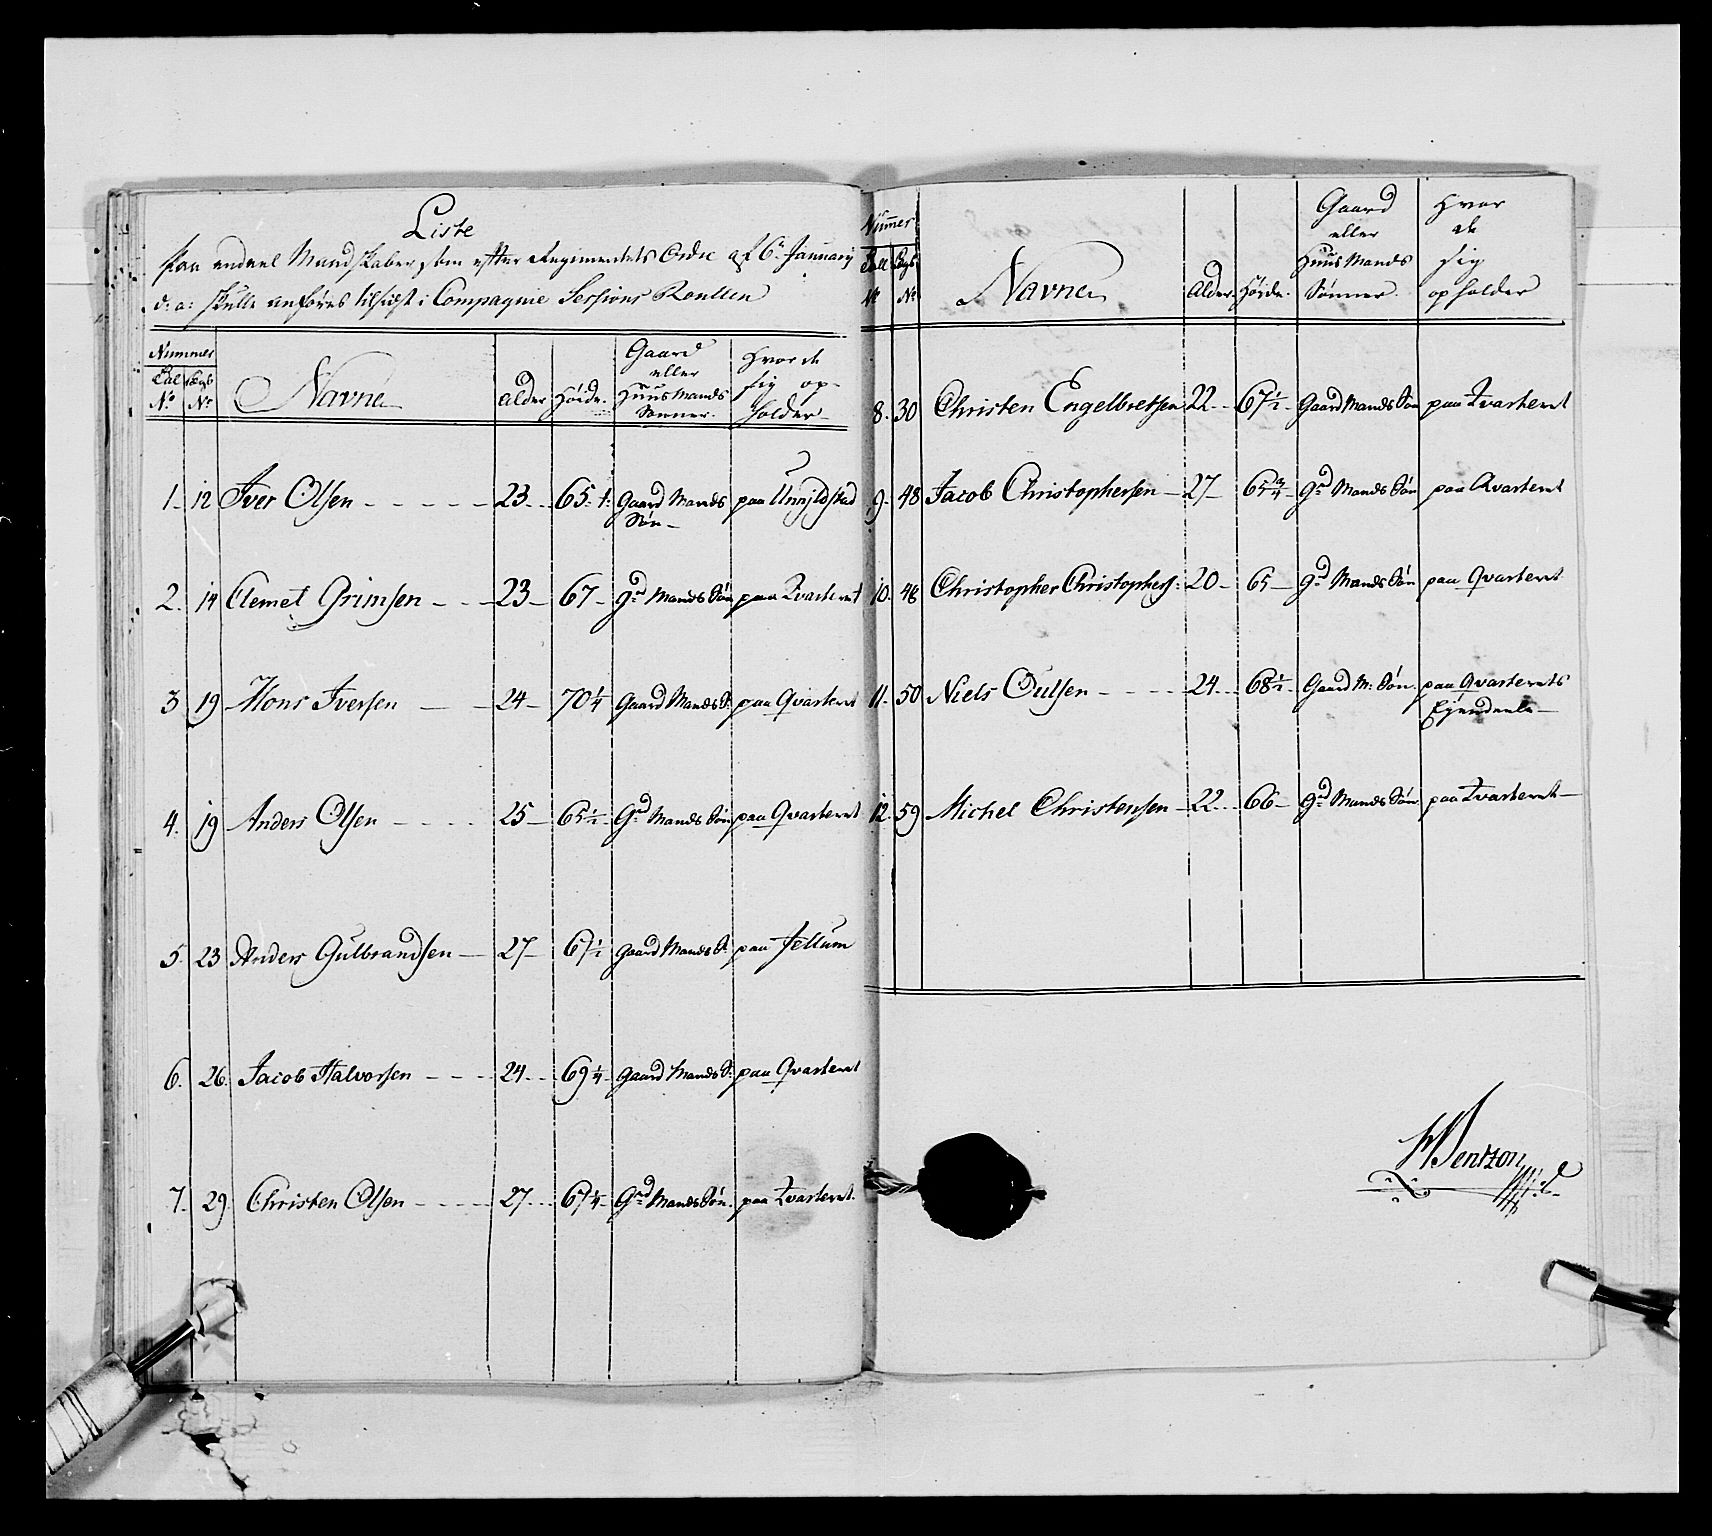 Liste
paa endeel Mandskaber som efter Regimentets Ordre af 6te January
d: a: skulle anføres tilsidst i Compagnie Sessions Roullen
Nummer
Tal No
Lægs No
Navne
Alder
Høide
Gaard eller Huus Mands Sønner
Hvor de sig opholder
1. 12 Iver Olsen 23 65. 1: Gaard Mands Søn paa
2. 14 Clemet Grimsen 23 67 Gd Mands Søn paa Qvarteret
3 19 Mons Iversen 24 70 1/4 Gaard Mands S: paa Qvarteret
4. 19 Anders Olsen 25 65 1/2 Gd Mands Søn paa Qvarteret
5. 23 Anders Gulbrandsen 27 67 1/2 Gaard Mands S: paa Jellum
6. 26. Jacob Halvorsen 24 69 1/4 Gaard Mands S: paa Qvarteret
7. 29. Christen Olsen 27 67 1/4 Gd Mands Søn. paa Qvarteret.
Nummer
Tall No
Lægs No
Navne
Alder
Høide.
Gaard eller Huus Mands Sønner.
Hvor de sig opholder
8. 30 Christen Engelbretsen 22 67 1/2 Gaard Mands Søn paa Qvarteret
9. 48 Jacob Christophersen 27 65 3/4 Gd Mands Søn paa Qvarteret
10. 48 Christopher Christophers: 20 65 Gd Mands Søn paa Qvarteret
11. 50 Niels Oulsen 24 68 1/2 Gaard M: Søn. paa Qvarterets Ejendeele
12. 59 Michel Christensen 22 66 Gd Mands Søn paa Qvarteret
Bentzon